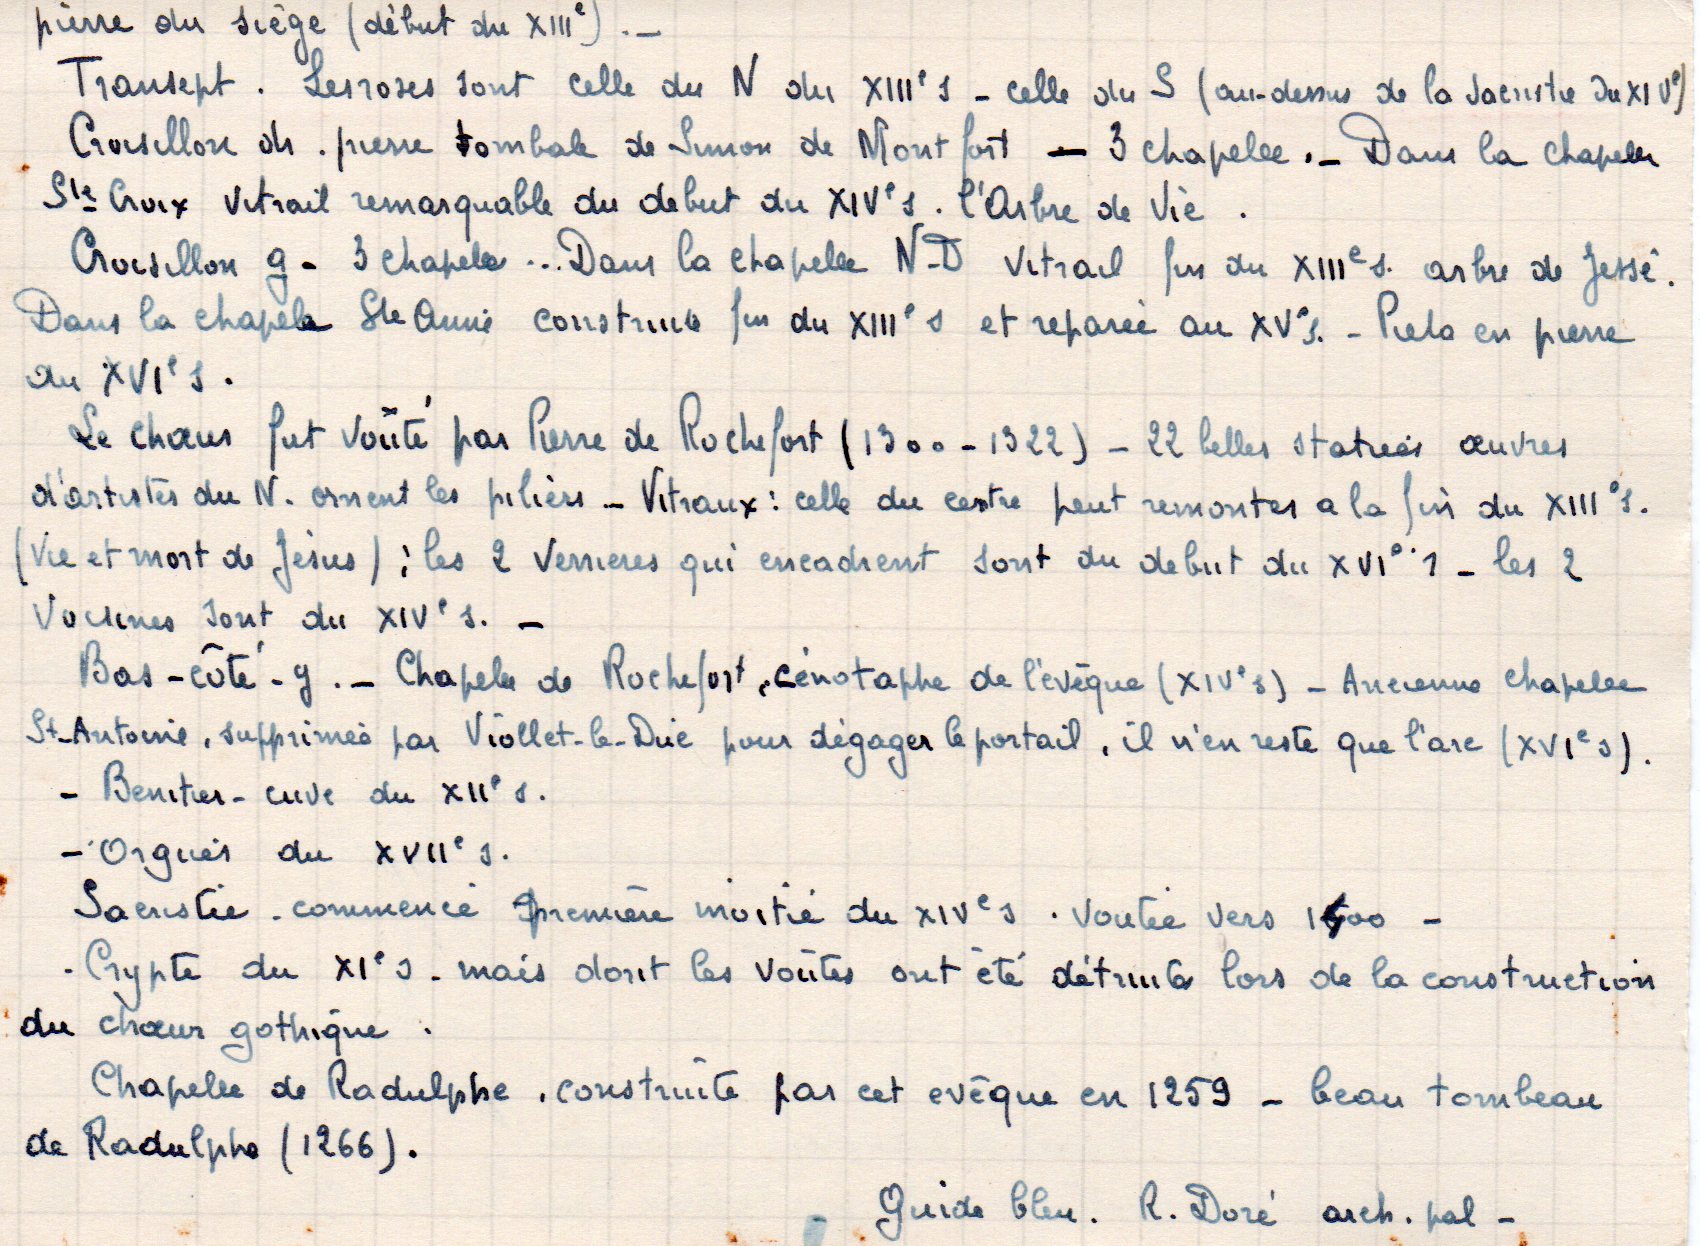 pierre du siège (début du XIIIe) . _
Transept . Les roses sont celle du N du XIIIe s - celle du S (au-dessus de la sacristie du XIVe)
Croisillon dr . pierre tombale de Simon de Montfort - 3 chapelle . - Dans la chapelle
Ste Croix vitrail remarquable du debut du XIVe s . l'Arbre de Vie .
Croisillon g - 3 chapelle ... Dans la chapelle N-D vitrail fin du XIIIe s. arbre de Jessé.
Dans la chapelle Ste Anne construite fin du XIIIe s et reparée au XVe s. - Pieta en pierre
du XVIe s .
Le chœur fut voûté par Pierre de Rochefort (1300 - 1322) - 22 belles statues œuvres
d'artistes du N. ornent les piliers - Vitraux : celle du centre peut remonter a la fin du XIIIe s.
(Vie et mort de Jésus) ; les 2 verrieres qui encadrent sont du debut du XVIe s - les 2
voisines sont du XIVe s. -
Bas-côté - g . - Chapelle de Rochefort, cénotaphe de l'évêque (XIVe s) - Ancienne chapelle
St-Antoine, supprimée par Viollet-le-Duc pour dégager le portail, il n'en reste que l'arc (XVIe s).
- Benitier - cuve du XIIe s.
- Orgues du XVIIe s.
Sacristie . commencé première moitié du XIVe s . voutée vers 1400 -
- Crypte du XIe s - mais dont les voûtes ont été détruites lors de la construction
du chœur gothique .
Chapelle de Radulphe . construite par cet evêque en 1259 - beau tombeau
de Radulphe (1266) .
Guide bleu . R. Doré arch. pal -